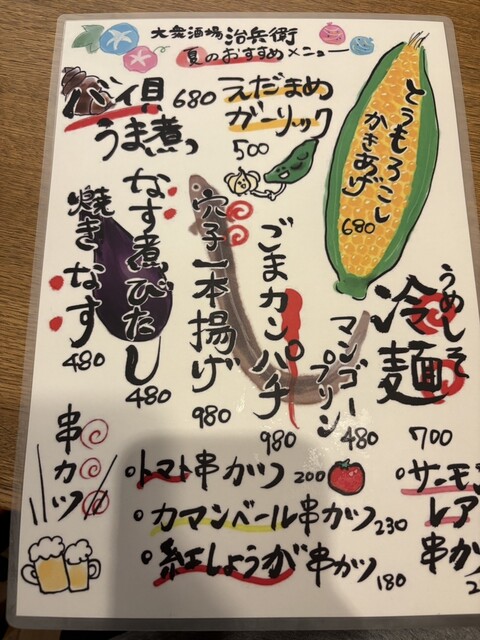 大衆酒場 治兵衛
夏のおすすめメニュー
バイ貝
うま煮
680
えだまめ
ガーリック
500
とうもろこし
かきあげ
680
うめしそ
冷麺
700
マンゴー
プリン
480
ごまカンパチ
980
穴子一本揚げ
980
なす煮びたし
480
焼きなす
480
串カツ
・トマト串カツ 200
・カマンベール串カツ 230
・紅しょうが串カツ 180
・サーモ
レア
串カツ